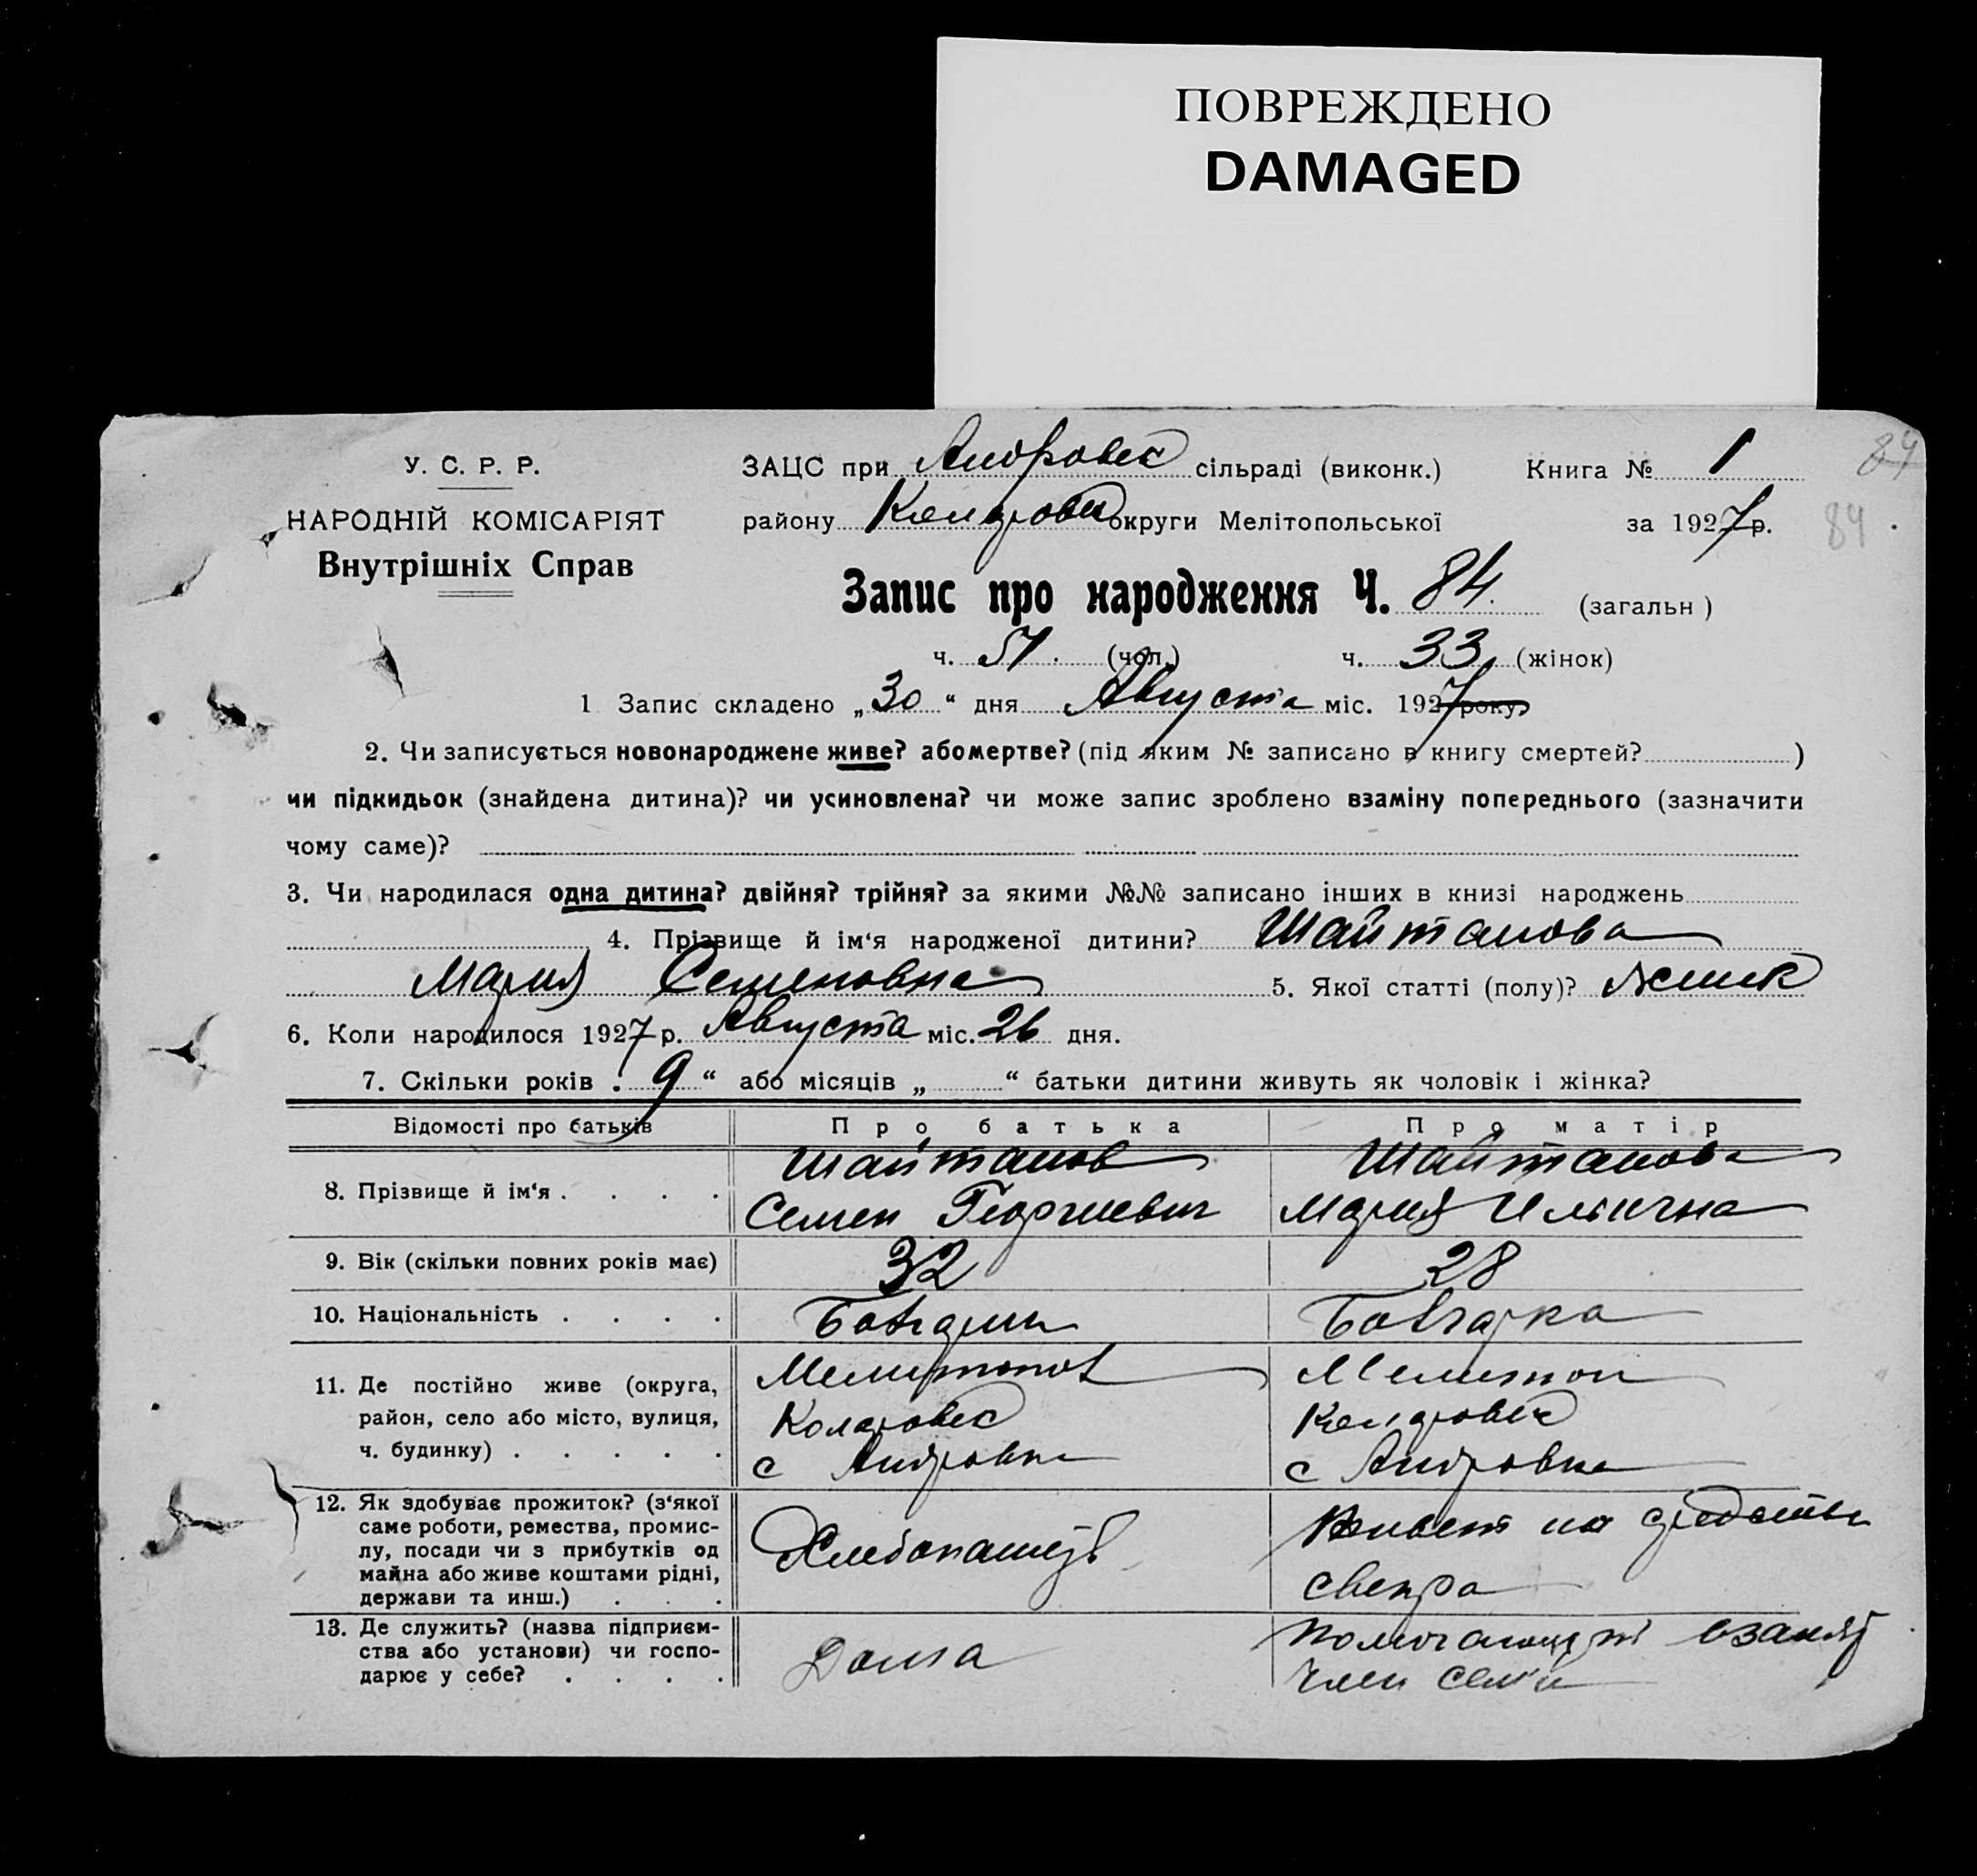 ПОВРЕЖДЕНО
DAMAGED
84
У. С. Р. Р.
ЗАЦС при Андровск сільраді (виконк.) Книга № 1
НАРОДНІЙ КОМІСАРІЯТ
району округи Мелітопольської за 1927 р.
84
Внутрішніх Справ
Запис про народження Ч. 84. (загальн)
ч. 51. (чол.) ч. 33 (жінок)
1 Запис складено „30" дня Августа міс. 1927 року
2. Чи записується новонароджене живе? або мертве? (під яким № записано в книгу смертей? )
чи підкидьок (знайдена дитина)? чи усиновлена? чи може запис зроблено взаміну попереднього (зазначити
чому саме)?
3. Чи народилася одна дитина? двійня? трійня? за якими №№ записано інших в книзі народжень
4. Прізвище й ім'я народженої дитини? Шайтанова
Мария Семеновна 5. Якої статті (полу)? женск
6. Коли народилося 1927 р. Августа міс. 26 дня.
7. Скільки років „9" або місяців „ " батьки дитини живуть як чоловік і жінка?
Відомості про батьків Про батька Про матір
8. Прізвище й ім'я . . . .
Шайтанов
Семен Георгиевич
Шайтанова
Мария Ильична
9. Вік (скільки повних років має) 32 28
10. Національність . . . . Болгарин Болгарка
11. Де постійно живе (округа,
район, село або місто, вулиця,
ч. будинку) . . . . .
Мелитопол
Коларовск
с Андровка
Мелитоп
Коларовск
с Андровка
12. Як здобуває прожиток? (з'якої
саме роботи, ремества, промис-
лу, посади чи з прибутків од
майна або живе коштами рідні,
держави та инш.) . . .
Хлебопашец
Живет на средства
свекра
13. Де служить? (назва підприєм-
ства або установи) чи госпо-
дарює у себе? . . . .
Дома
член семьи